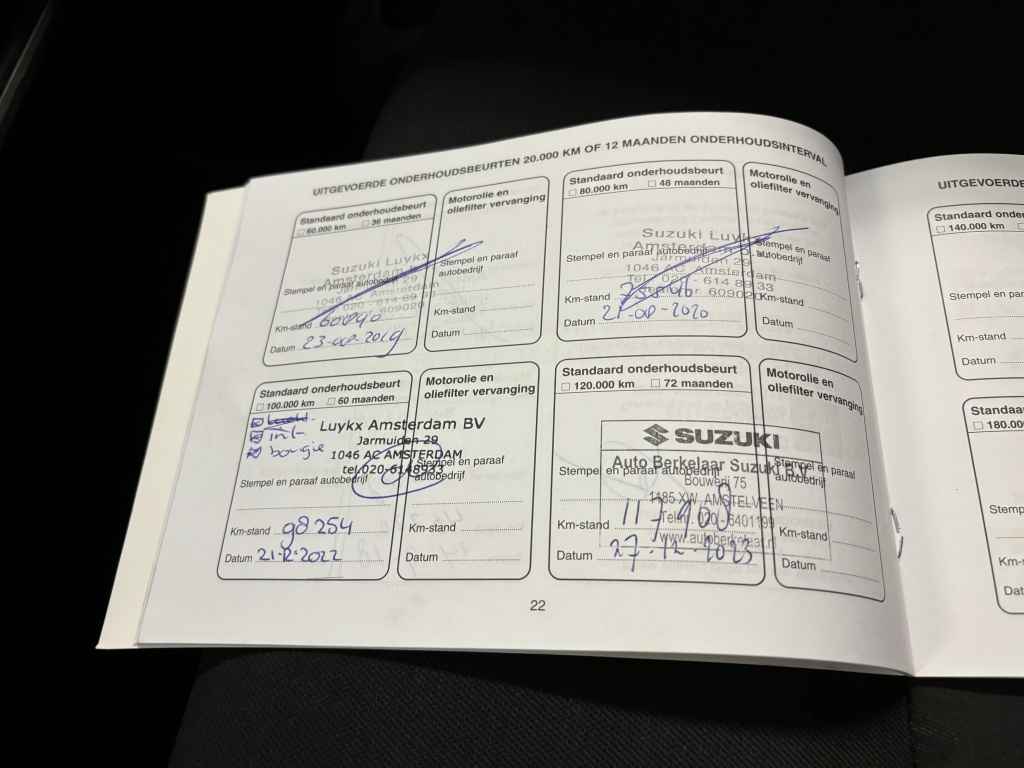 UITGEVOERDE ONDERHOUDSBEURTEN 20.000 KM OF 12 MAANDEN ONDERHOUDSINTERVAL
Standaard onderhoudsbeurt
60.000 km 36 maanden
Suzuki Luykx
Amsterdam
Stempel en paraaf autobedrijf
Jarmuiden 29
1046 AC Amsterdam
Tel. 020 - 614 89 33
Km-stand
Datum 23-
Motorolie en
oliefilter vervanging
Stempel en paraaf
autobedrijf
Km-stand
Datum
Standaard onderhoudsbeurt
80.000 km 48 maanden
Suzuki Luykx
Amsterdam
Stempel en paraaf autobedrijf
Jarmuiden 29
1046 AC Amsterdam
Tel. 020 - 614 89 33
Km-stand
Datum
Motorolie en
oliefilter vervanging
Stempel en paraaf
autobedrijf
Km-stand
Datum
Standaard onderhoudsbeurt
100.000 km 60 maanden
int-
bougie
Luykx Amsterdam BV
Jarmuiden 29
1046 AC AMSTERDAM
tel.020-6148933
Stempel en paraaf autobedrijf
Km-stand 98254
Datum 21-12-2022
Motorolie en
oliefilter vervanging
Stempel en paraaf
autobedrijf
Km-stand
Datum
Standaard onderhoudsbeurt
120.000 km 72 maanden
SUZUKI
Auto Berkelaar Suzuki B.V.
Stempel en paraaf autobedrijf
Bouwerij 75
1185 XW AMSTELVEEN
Telnr. 020 - 6401199
www.autoberkelaar.nl
Km-stand 117908
Datum 27-12-2023
Motorolie en
oliefilter vervanging
Stempel en paraaf
autobedrijf
Km-stand
Datum
22
UITGEVOERDE
Standaard onder
140.000 km
Stempel en paraaf
Km-stand
Datum
Standaa
180.00
Stemp
Km-s
Dat